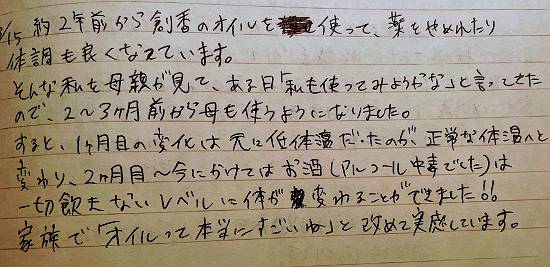 8/15 約2年前から創香のオイルを使って、薬をやめれたり
体調も良くなっています。
そんな私を母親が見て、ある日「私も使ってみようかな」と言ってきた
ので、2〜3ヶ月前から母も使うようになりました。
すると、1ヶ月目の変化は元に低体温だったのが、正常な体温へと
変わり、2ヶ月目〜今にかけてはお酒(アルコール中毒でした)は
一切飲まないレベルに体が変わることができました!!
家族で「オイルって本当にすごいね」と改めて実感しています。